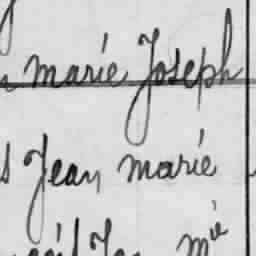 marie Joseph
Jean marie
mie